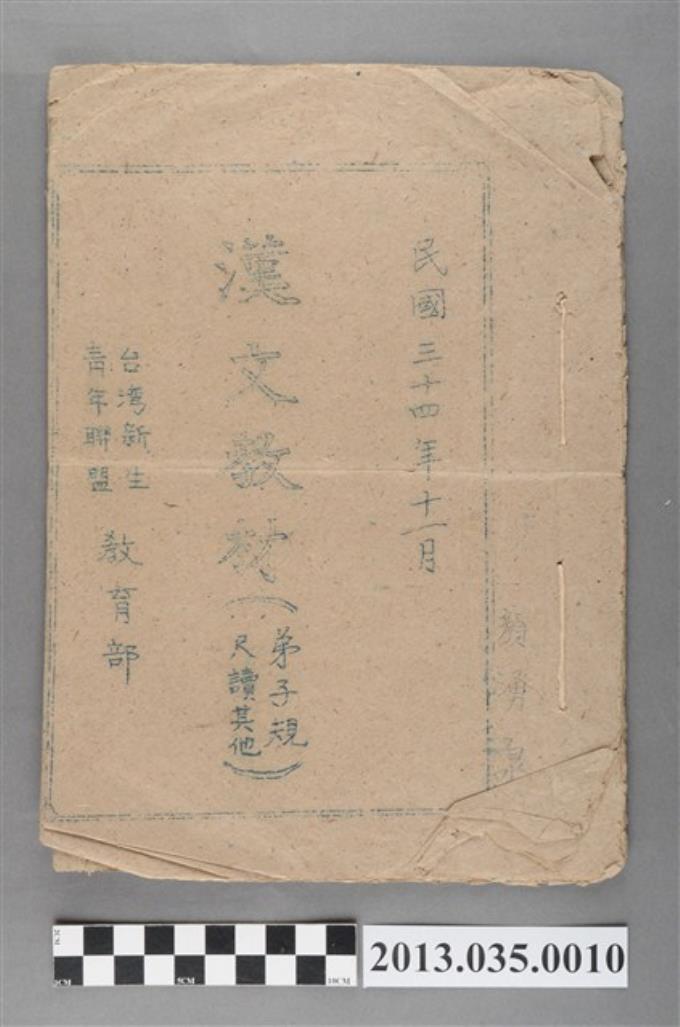 民國三十四年十一月
漢文教材（弟子規
尺讀其他）
台湾新生
青年聯盟
教育部
5CM
10CM
2013.035.0010